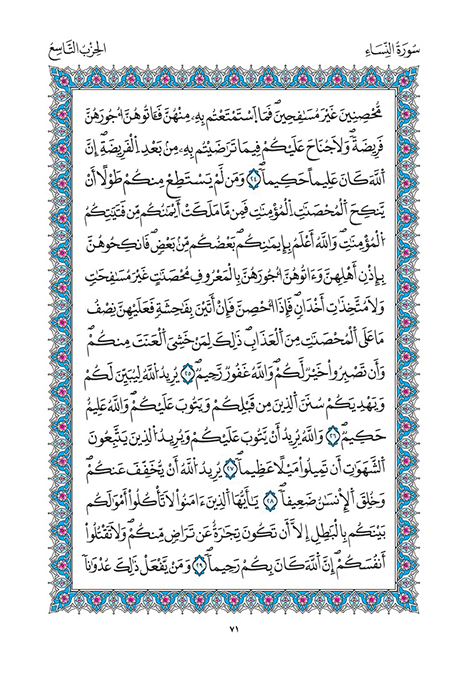 سُورَةُ النِّسَاءِ
الحِزْبُ التَّاسِعُ
مُّحْصِنِينَ غَيْرَ مُسَٰفِحِينَۖ فَمَا اَسْتَمْتَعْتُم بِهِۦ مِنْهُنَّ فَـَٔاتُوهُنَّ أُجُورَهُنَّ
فَرِيضَةٗۖ وَلَا جُنَاحَ عَلَيْكُمْ فِيمَا تَرَٰضَيْتُم بِهِۦ مِنۢ بَعْدِ اِ۬لْفَرِيضَةِۖ إِنَّ
اَ۬للَّهَ كَانَ عَلِيماً حَكِيماٗۖ ٢٤ وَمَن لَّمْ يَسْتَطِعْ مِنكُمْ طَوْلًا أَنْ
يَّنكِحَ اَ۬لْمُحْصَنَٰتِ اِ۬لْمُؤْمِنَٰتِ فَمِن مَّا مَلَكَتْ أَيْمَٰنُكُم مِّن فَتَيَٰتِكُمُ
اُ۬لْمُؤْمِنَٰتِۖ وَاللَّهُ أَعْلَمُ بِإِيمَٰنِكُمۖ بَعْضُكُم مِّنۢ بَعْضٖۖ فَانكِحُوهُنَّ
بِإِذْنِ أَهْلِهِنَّ وَءَاتُوهُنَّ أُجُورَهُنَّ بِالْمَعْرُوفِ مُحْصَنَٰتٍ غَيْرَ مُسَٰفِحَٰتٖ
وَلَا مُتَّخِذَٰتِ أَخْدَانٖۖ فَإِذَا أُحْصِنَّ فَإِنْ أَتَيْنَ بِفَٰحِشَةٖ فَعَلَيْهِنَّ نِصْفُ
مَا عَلَى اَ۬لْمُحْصَنَٰتِ مِنَ اَ۬لْعَذَابِۖ ذَٰلِكَ لِمَنْ خَشِيَ اَ۬لْعَنَتَ مِنكُمْۖ
وَأَن تَصْبِرُواْ خَيْرٞ لَّكُمْۖ وَاللَّهُ غَفُورٞ رَّحِيمٞۖ ٢٥ يُرِيدُ اُ۬للَّهُ لِيُبَيِّنَ لَكُمْ
وَيَهْدِيَكُمْ سُنَنَ اَ۬لذِينَ مِن قَبْلِكُمْ وَيَتُوبَ عَلَيْكُمْۖ وَاللَّهُ عَلِيمٌ
حَكِيمٞۖ ٢٦ وَاللَّهُ يُرِيدُ أَنْ يَّتُوبَ عَلَيْكُمْ وَيُرِيدُ اُ۬لذِينَ يَتَّبِعُونَ
اَ۬لشَّهَوَٰتِ أَن تَمِيلُواْ مَيْلًا عَظِيماٗۖ ٢٧ يُرِيدُ اُ۬للَّهُ أَنْ يُّخَفِّفَ عَنكُمْۖ
وَخُلِقَ اَ۬لْإِنسَٰنُ ضَعِيفاٗۖ ٢٨ يَٰأَيُّهَا اَ۬لذِينَ ءَامَنُواْ لَا تَأْكُلُواْ أَمْوَٰلَكُم
بَيْنَكُم بِالْبَٰطِلِ إِلَّا أَن تَكُونَ تِجَٰرَةٌ عَن تَرَاضٖ مِّنكُمْۖ وَلَا تَقْتُلُواْ
أَنفُسَكُمْۖ إِنَّ اَ۬للَّهَ كَانَ بِكُمْ رَحِيماٗۖ ٢٩ وَمَنْ يَّفْعَلْ ذَٰلِكَ عُدْوَٰناٗ
٧١